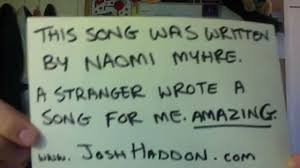 THIS SONG WAS WRITTEN
BY NAOMI MYHRE.
A STRANGER WROTE A
SONG FOR ME. AMAZING.
www. JOSHHADDON.com